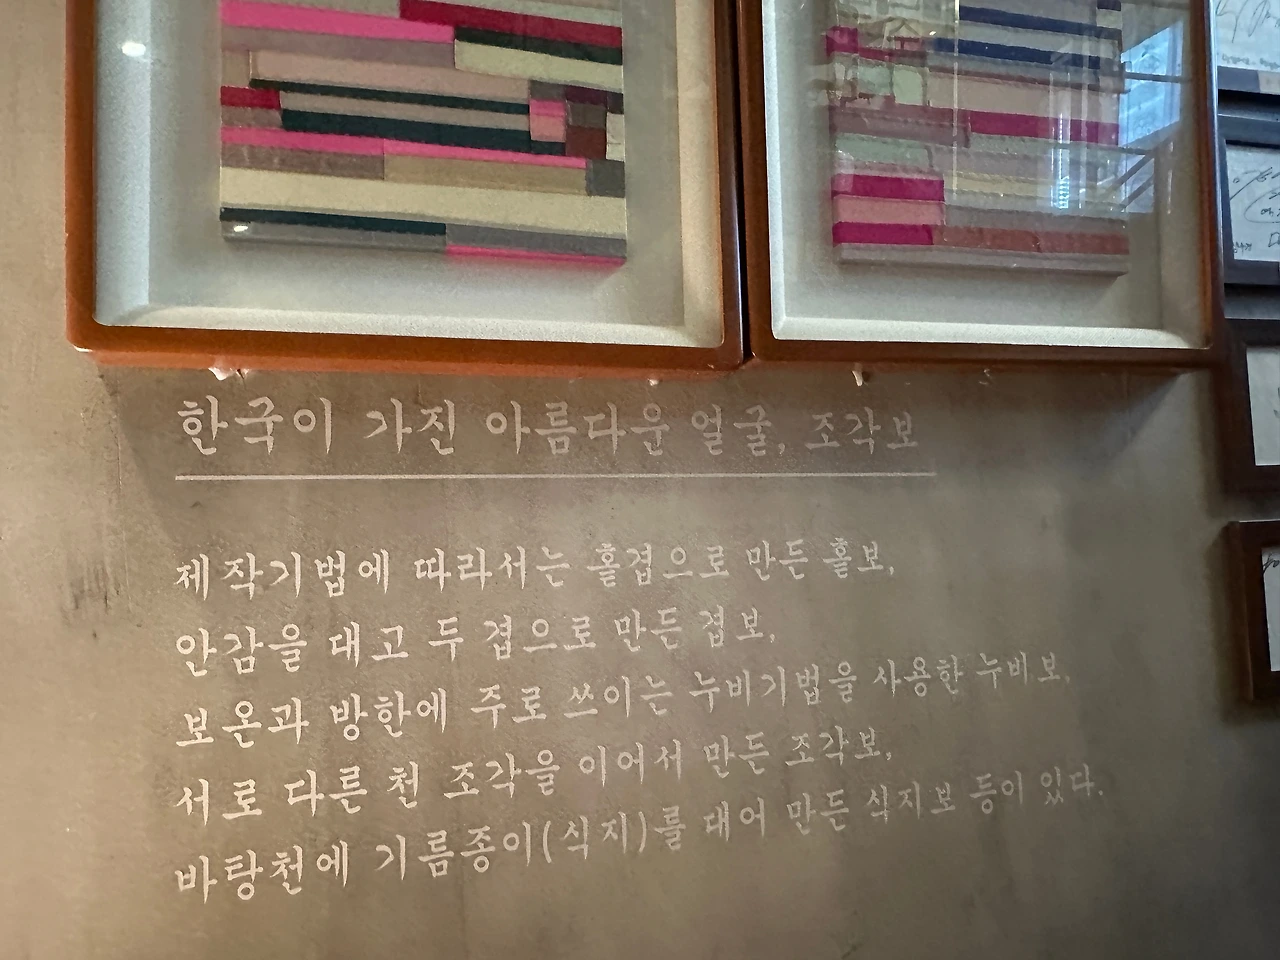 한국이 가진 아름다운 얼굴, 조각보
제작기법에 따라서는 홑겹으로 만든 홑보,
안감을 대고 두 겹으로 만든 겹보,
보온과 방한에 주로 쓰이는 누비기법을 사용한 누비보,
서로 다른 천 조각을 이어서 만든 조각보,
바탕천에 기름종이(식지)를 대어 만든 식지보 등이 있다.